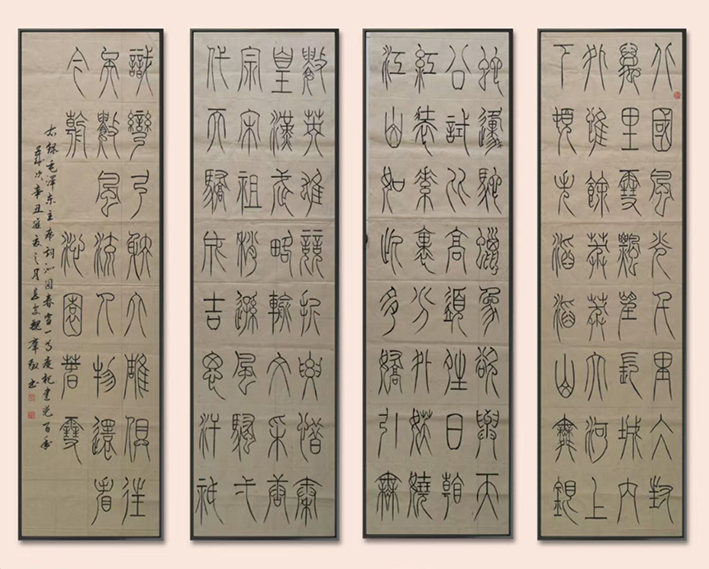 北國風光千里冰封
萬里雪飄望長城內
外惟餘莽莽大河上
下頓失滔滔山舞銀
蛇原馳蠟象欲與天
公試比高須晴日看
紅裝素裹分外妖嬈
江山如此多嬌引無
數英雄競折腰惜秦
皇漢武略輸文采唐
宗宋祖稍遜風騷一
代天驕成吉思汗祇
識彎弓射大雕俱往
矣數風流人物還看
今朝 沁園春雪
右錄毛澤東主席詞沁園春雪一首慶祝建党百年
歲次辛丑孟夏之月 書